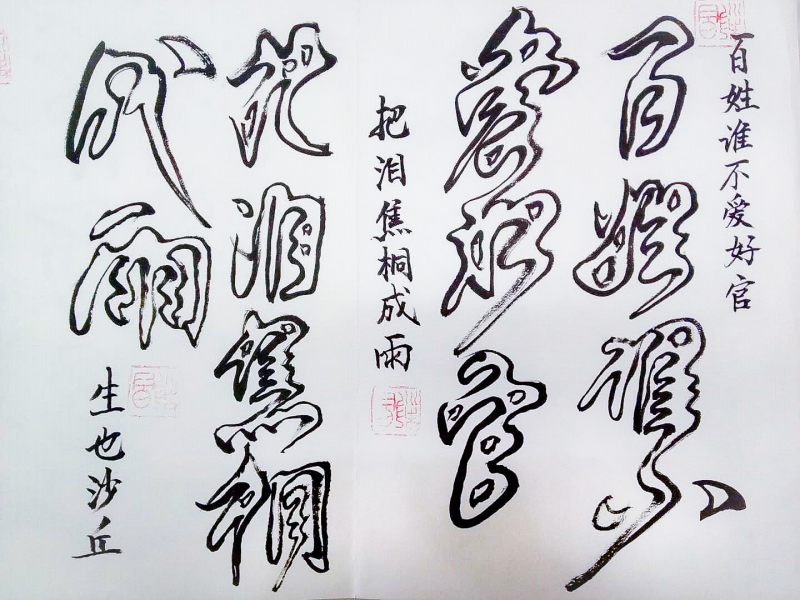 百姓谁不爱好官
百姓谁不
爱好官
把泪焦桐成雨
把泪焦桐
成雨
生也沙丘